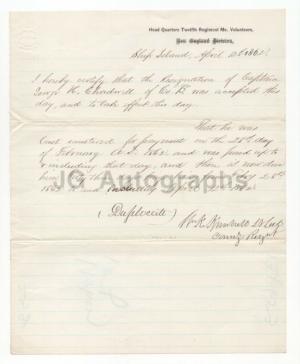 Head Quarters Twelfth Regiment Me. Volunteers,
New England Division,
Ship Island, April 12 1862
I hereby certify that the resignation of Captain
George H. Chadwell of Co B was accepted this
day, and to take effect this day.
That he was
last mustered for payment on the 28th day
of February A.D. 1862 and was paid up to
& including that day, and there is now due
him pay
1862 and including
(Duplicate)
W. K. Kimball Lt Col
Comdg Regt
JG Autographs